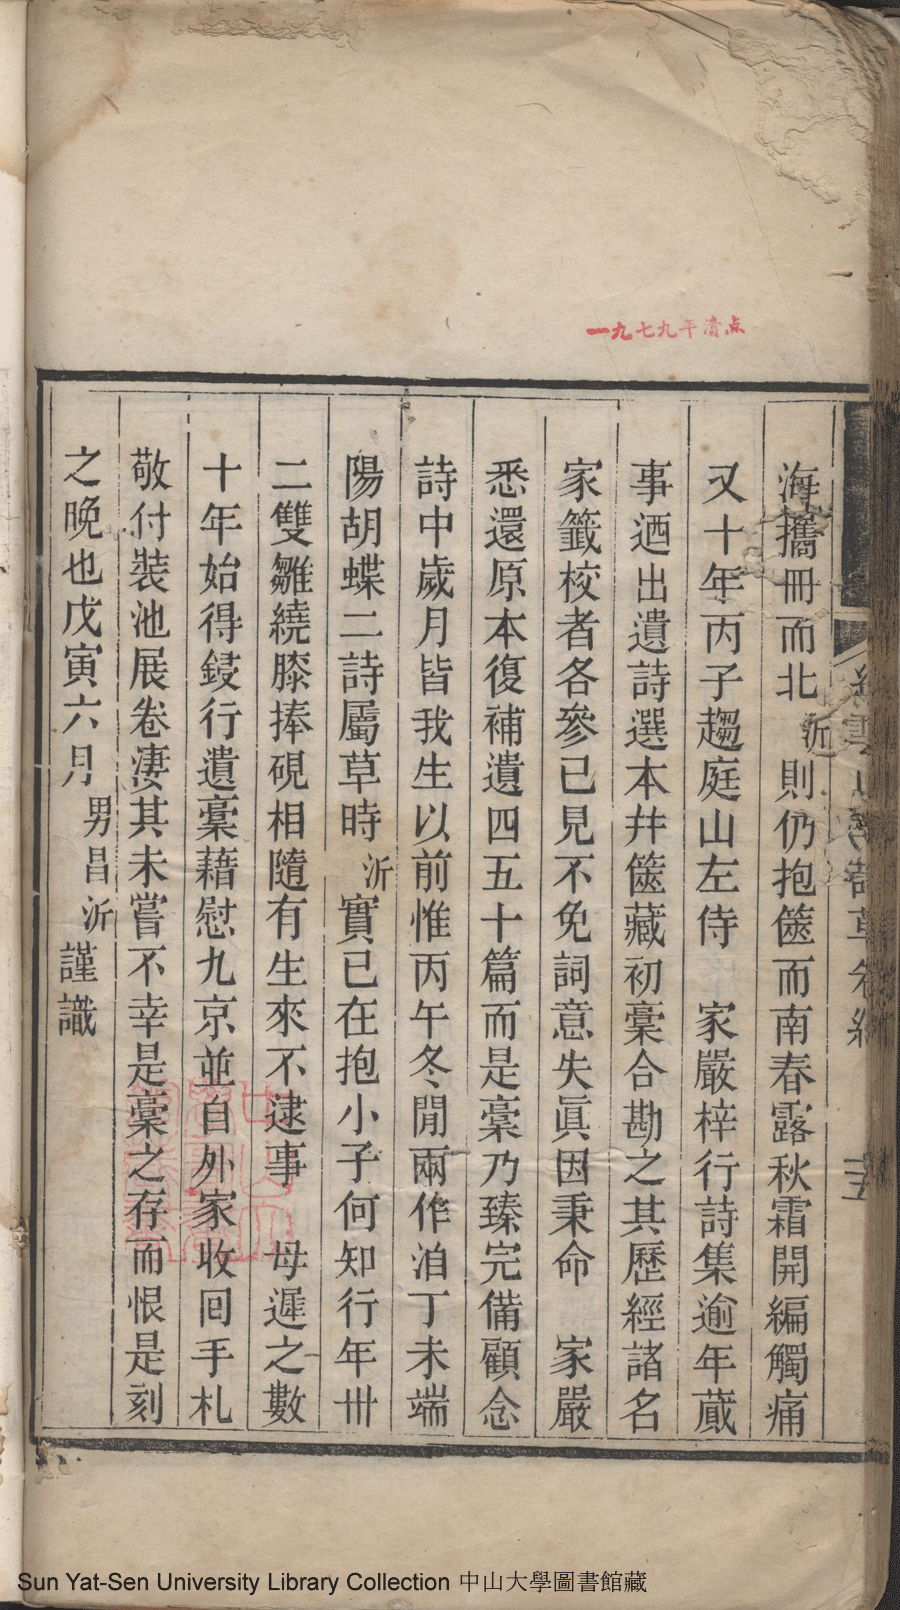 一九七九年清点
海攜冊而北沂則仍抱篋而南春露秋霜開編觸痛
又十年丙子趨庭山左侍 家嚴梓行詩集逾年蕆
事迺出遺詩選本幷篋藏初稾合勘之其歷經諸名
家籤校者各參已見不免詞意失眞因秉命 家嚴
悉還原本復補遺四五十篇而是稾乃臻完備顧念
詩中歲月皆我生以前惟丙午冬閒兩作洎丁未端
陽胡蝶二詩屬草時沂實已在抱小子何知行年卅
二雙雛繞膝捧硯相隨有生來不逮事 母遲之數
十年始得鋟行遺稾藉慰九京並自外家收囘手札
敬付裝池展卷淒其未嘗不幸是稾之存而恨是刻
之晚也戊寅六月 男昌沂謹識
Sun Yat-Sen University Library Collection 中山大學圖書館藏